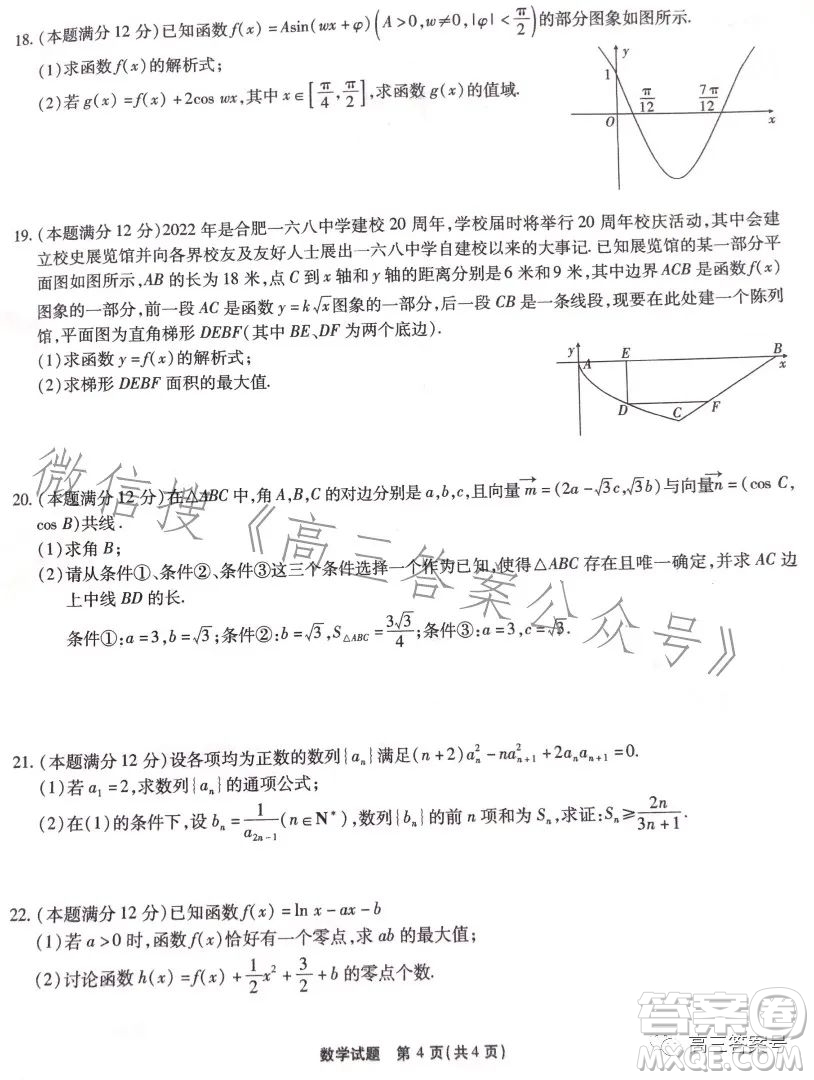 18. (本题满分 12 分)已知函数 f(x)=Asin(wx+φ)(A>0,w≠0,|φ|<π/2)的部分图象如图所示.
(1)求函数 f(x)的解析式;
(2)若 g(x)=f(x)+2cos wx,其中 x∈[π/4,π/2],求函数 g(x)的值域.
y
1
π/12
7π/12
O
x
19. (本题满分 12 分)2022 年是合肥一六八中学建校 20 周年,学校届时将举行 20 周年校庆活动,其中会建
立校史展览馆并向各界校友及友好人士展出一六八中学自建校以来的大事记. 已知展览馆的某一部分平
面图如图所示,AB 的长为 18 米,点 C 到 x 轴和 y 轴的距离分别是 6 米和 9 米,其中边界 ACB 是函数 f(x)
图象的一部分,前一段 AC 是函数 y=k√x图象的一部分,后一段 CB 是一条线段,现要在此处建一个陈列
馆,平面图为直角梯形 DEBF(其中 BE、DF 为两个底边).
(1)求函数 y=f(x)的解析式;
(2)求梯形 DEBF 面积的最大值.
y
A
E
B
x
D
C
F
20. (本题满分 12 分)在△ABC 中,角 A,B,C 的对边分别是 a,b,c,且向量 m→=(2a-√3c,√3b)与向量 n→=(cos C,
cos B)共线.
(1)求角 B;
(2)请从条件①、条件②、条件③这三个条件选择一个作为已知,使得△ABC 存在且唯一确定,并求 AC 边
上中线 BD 的长.
条件①:a=3,b=√3;条件②:b=√3,S△ABC=3√3/4;条件③:a=3,c=√3.
微信搜《高三答案公众号》
21. (本题满分 12 分)设各项均为正数的数列{aₙ}满足(n+2)aₙ²-naₙ₊₁²+2aₙaₙ₊₁=0.
(1)若 a₁=2,求数列{aₙ}的通项公式;
(2)在(1)的条件下,设 bₙ=1/a₂ₙ₋₁(n∈N*),数列{bₙ}的前 n 项和为 Sₙ,求证:Sₙ≥2n/(3n+1).
22. (本题满分 12 分)已知函数 f(x)=ln x-ax-b
(1)若 a>0 时,函数 f(x)恰好有一个零点,求 ab 的最大值;
(2)讨论函数 h(x)=f(x)+1/2x²+3/2+b 的零点个数.
数学试题 第 4 页(共 4 页)
答案圈
高三答案号
MXQE.COM